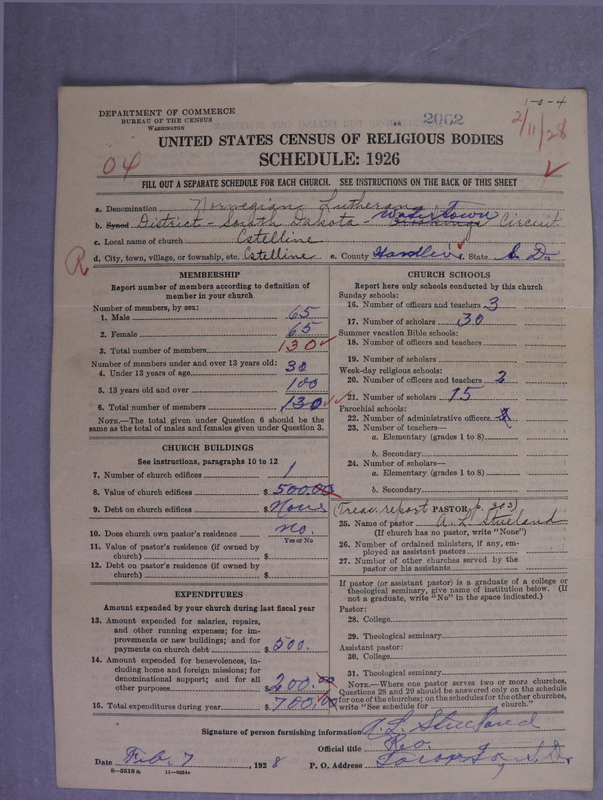 1-0-4
DEPARTMENT OF COMMERCE
BUREAU OF THE CENSUS
WASHINGTON
2062
2/11/28
UNITED STATES CENSUS OF RELIGIOUS BODIES
SCHEDULE: 1926
04
FILL OUT A SEPARATE SCHEDULE FOR EACH CHURCH. SEE INSTRUCTIONS ON THE BACK OF THIS SHEET
a. Denomination Norwegian Lutheran
b. Synod District - South Dakota - Watertown Circuit
c. Local name of church Estelline
R
d. City, town, village, or township, etc. Estelline e. County Hamlin f. State S. D.
MEMBERSHIP
Report number of members according to definition of
member in your church
Number of members, by sex:
1. Male 65
2. Female 65
3. Total number of members 130
Number of members under and over 13 years old:
4. Under 13 years of age 30
5. 13 years old and over 100
6. Total number of members 130
NOTE.—The total given under Question 6 should be the
same as the total of males and females given under Question 3.
CHURCH BUILDINGS
See instructions, paragraphs 10 to 12
7. Number of church edifices 1
8. Value of church edifices $ 500.00
9. Debt on church edifices $ None
10. Does church own pastor's residence no.
Yes or No
11. Value of pastor's residence (if owned by
church) $
12. Debt on pastor's residence (if owned by
church) $
EXPENDITURES
Amount expended by your church during last fiscal year
13. Amount expended for salaries, repairs,
and other running expenses; for im-
provements or new buildings; and for
payments on church debt $ 500.
14. Amount expended for benevolences, in-
cluding home and foreign missions; for
denominational support; and for all
other purposes $ 200.00
15. Total expenditures during year $ 700.00
CHURCH SCHOOLS
Report here only schools conducted by this church
Sunday schools:
16. Number of officers and teachers 3
17. Number of scholars 30
Summer vacation Bible schools:
18. Number of officers and teachers
19. Number of scholars
Week-day religious schools:
20. Number of officers and teachers 2
21. Number of scholars 15
Parochial schools:
22. Number of administrative officers
23. Number of teachers—
a. Elementary (grades 1 to 8)
b. Secondary
24. Number of scholars—
a. Elementary (grades 1 to 8)
b. Secondary
(Treas. report PASTOR p. 303)
25. Name of pastor A. L.
(If church has no pastor, write "None")
26. Number of ordained ministers, if any, em-
ployed as assistant pastors
27. Number of other churches served by the
pastor or his assistants
If pastor (or assistant pastor) is a graduate of a college or
theological seminary, give name of institution below. (If
not a graduate, write "No" in the space indicated.)
Pastor:
28. College
29. Theological seminary
Assistant pastor:
30. College
31. Theological seminary
NOTE.—Where one pastor serves two or more churches,
Questions 28 and 29 should be answered only on the schedule
for one of the churches; on the schedules for the other churches,
write "See schedule for church."
Signature of person furnishing information A. L.
Official title Rev.
Date Feb. 7, 1928 P. O. Address S. D.
8-5518a 11-9554a